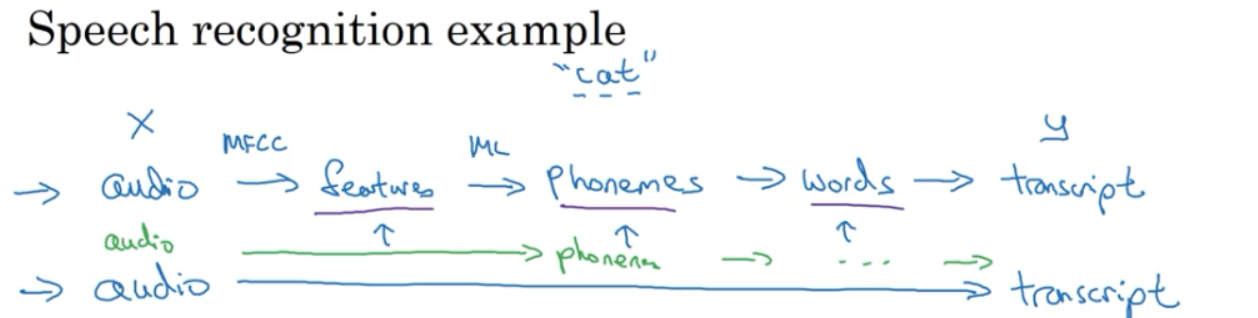 Speech recognition example
"cat"
X y
MFCC ML
→ audio → features → phonemes → words → transcript
↑ ↑ ↑
audio → phonemes → ... →
→ audio → transcript